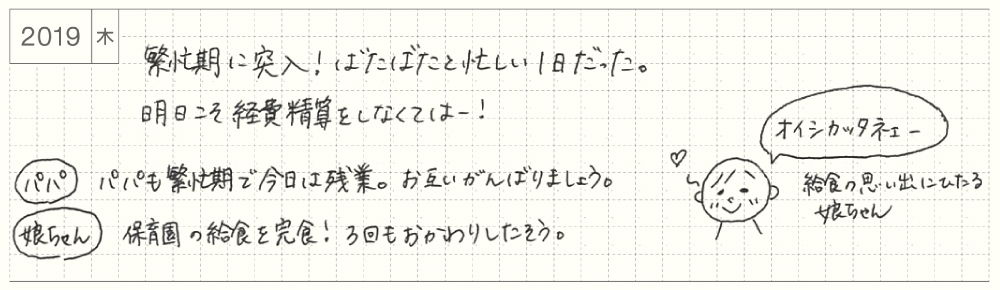 2019 木
繁忙期に突入！ばたばたと忙しい1日だった。
明日こそ経費精算をしなくてはー！
オイシカッタネェー
パパ パパも繁忙期で今日は残業。お互いがんばりましょう。
給食の思い出にひたる
娘ちゃん
娘ちゃん 保育園の給食を完食！3回もおかわりしたそう。